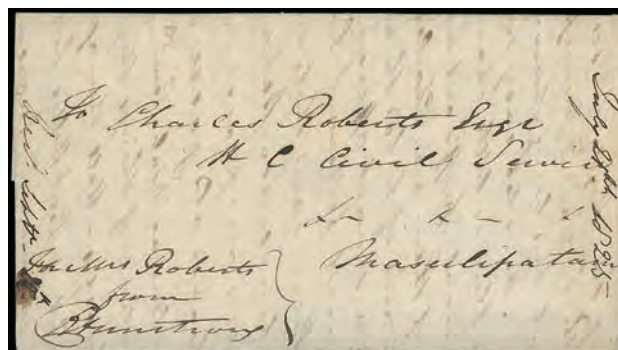 To Charles Roberts Esqr
H C Civil Service
Masulipatam
For Mrs Roberts
from
July 28th 1825